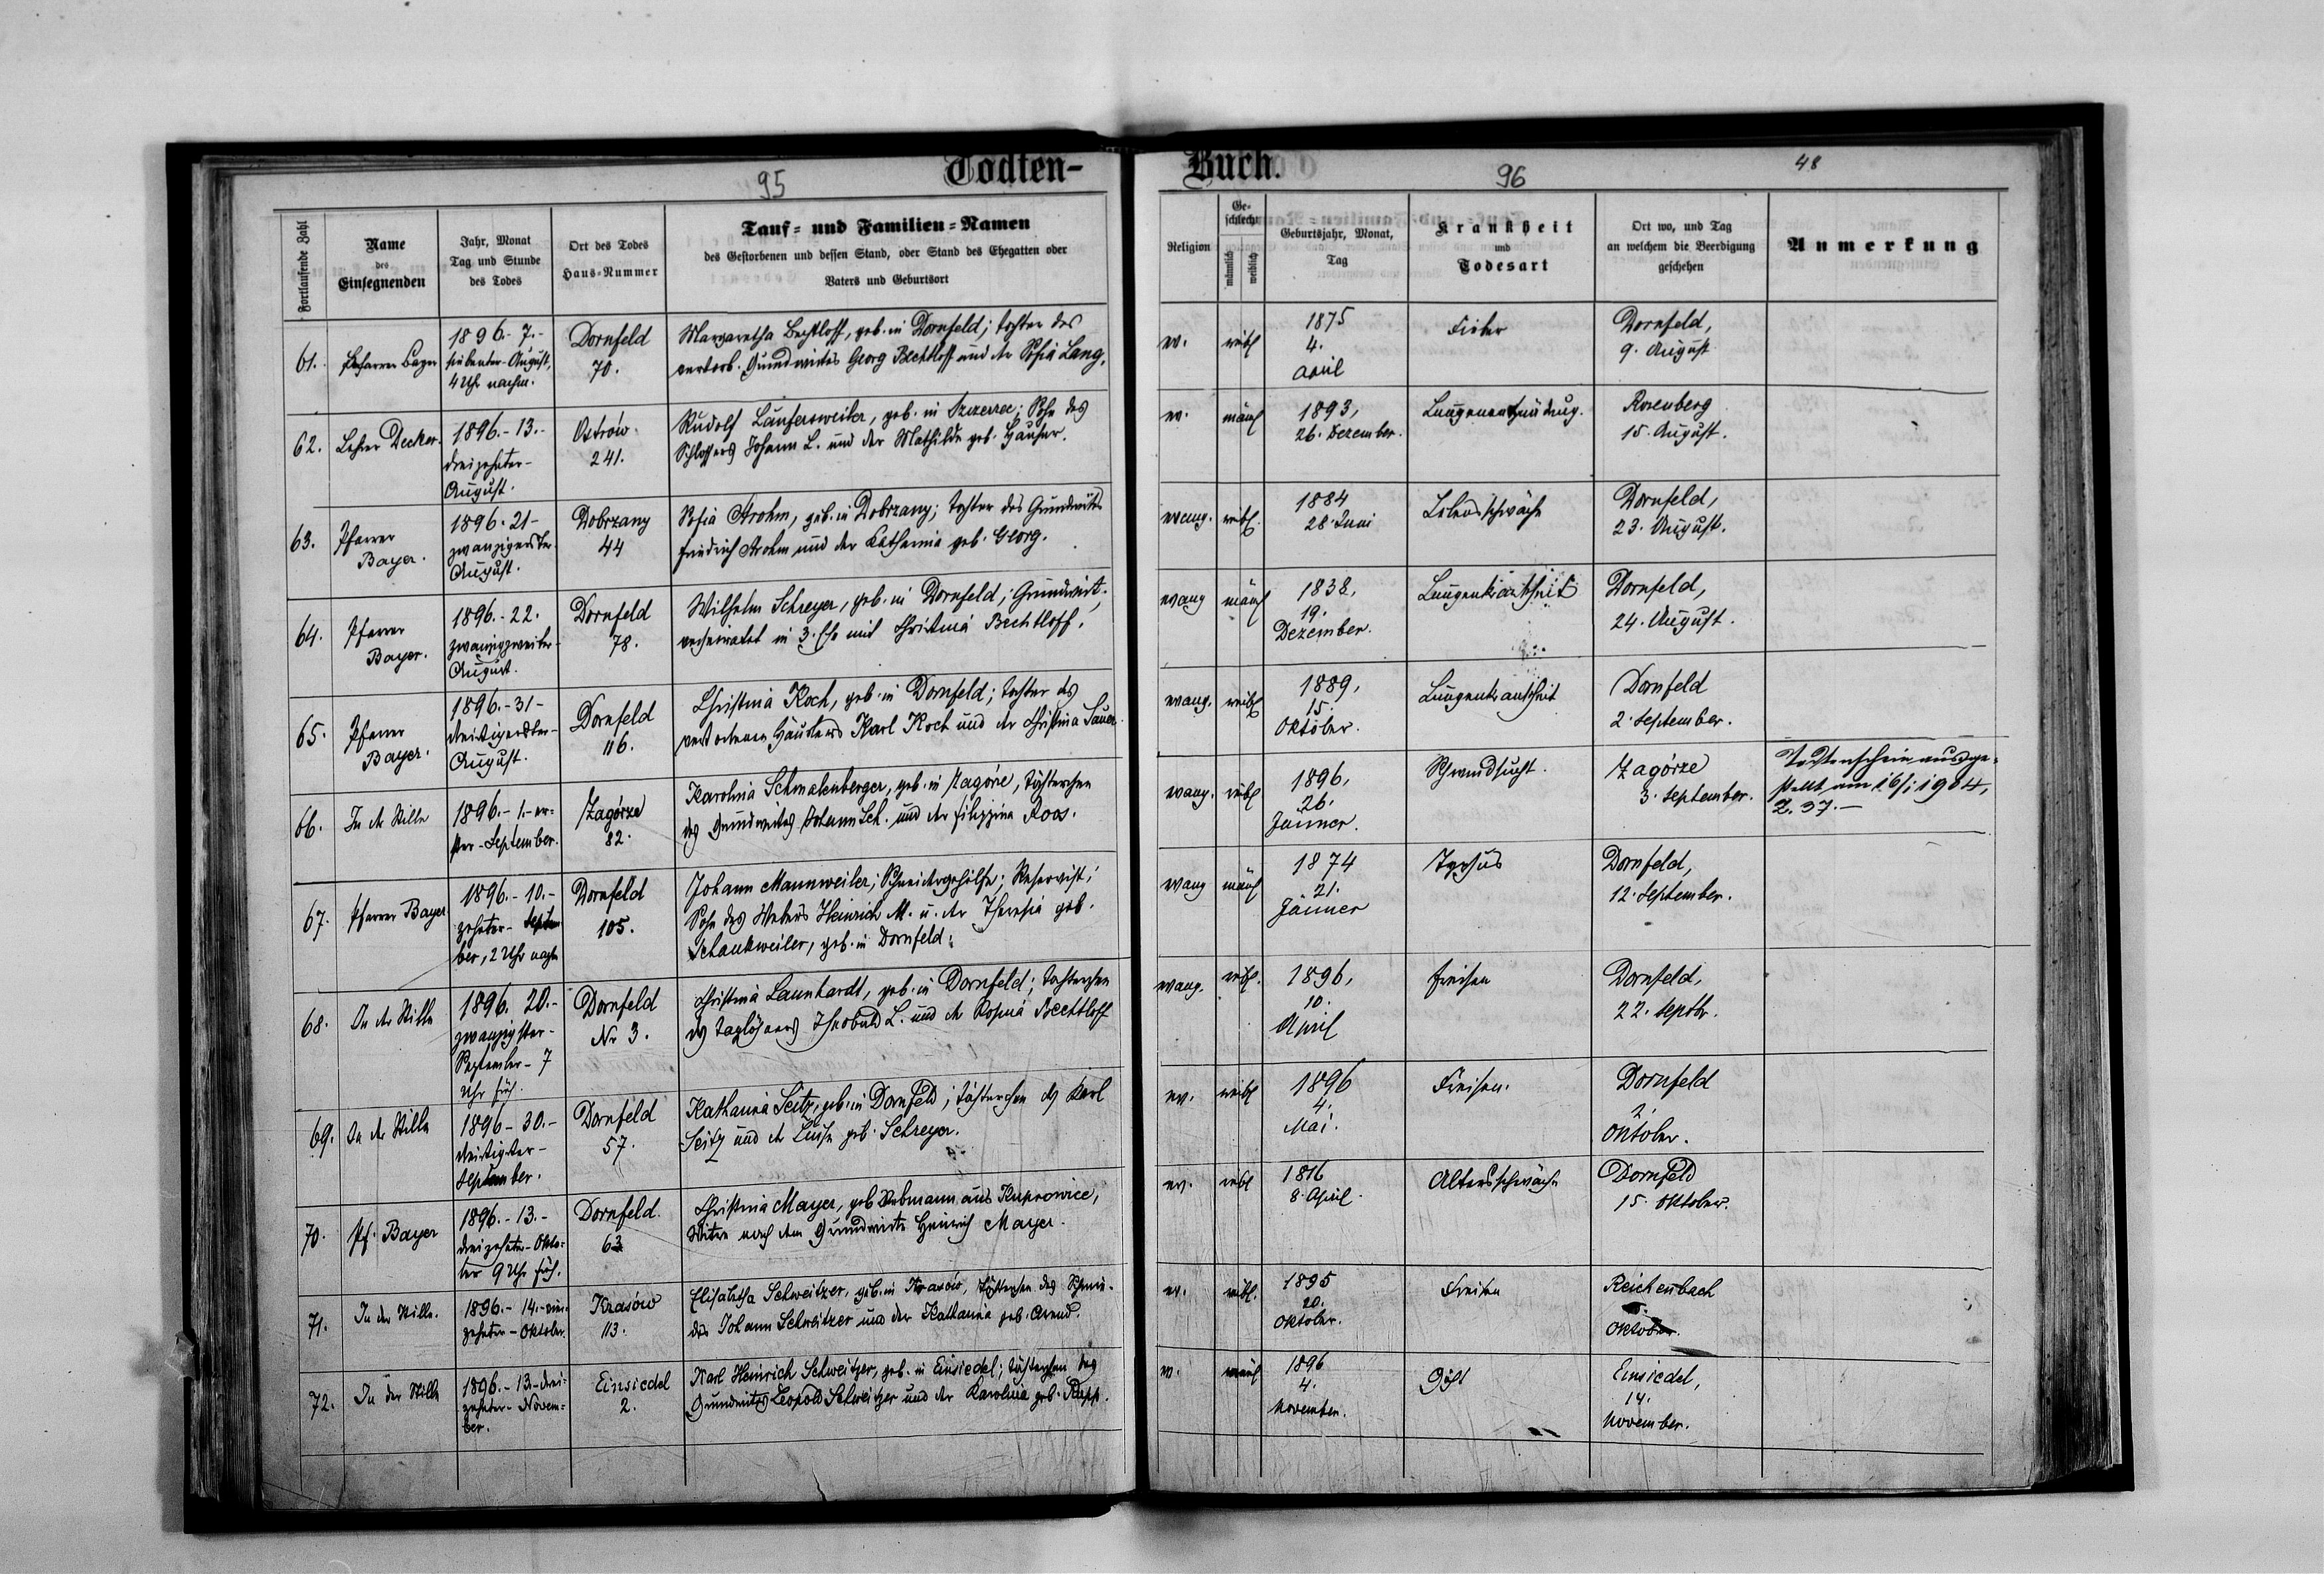 95
Todten-
Fortlaufende Zahl
Name
des
Einsegnenden
Jahr, Monat
Tag und Stunde
des Todes
Ort des Todes
Haus-Nummer
Tauf- und Familien-Namen
des Gestorbenen und dessen Stand, oder Stand des Ehegatten oder
Vaters und Geburtsort
61.
Pfarrer Bayer
1896.-7.-
siebenter-August,
4 Uhr nachm.
Dornfeld
70.
Margaretha Bechtloff, geb. in Dornfeld; Tochter des
verstorb. Grundwirtes Georg Bechtloff und der Sofia Lang.
62.
Lehrer Decker.
1896.-13.-
dreizehnter-
August.
Ostrów.
241.
Rudolf Laufersweiler, geb. in Szczerzec; Sohn des
Schlossers Johann L. und der Mathilde geb. Hauser.
63.
Pfarrer
Bayer.
1896. 21-
zwanzigerster
August.
Dobrzany
44
Sofia Arohm, geb. in Dobrzany; Tochter des Grundwirtes
Friedrich Arohm und der Katharina geb. Georg.
64.
Pfarrer
Bayer.
1896.-22.
zwanzigzweiter-
August.
Dornfeld
78.
Wilhelm Schreyer, geb. in Dornfeld; Grundwirt;
verheiratet in 3. Ehe mit Christina Bechtloff.
65.
Pfarrer
Bayer.
1896.-31-
dreißigerster-
August.
Dornfeld
116.
Christina Koch, geb. in Dornfeld; Tochter des
verstorbenen Häuslers Karl Koch und der Christina Sauer.
66.
In der Stille
1896.-1.-er=
ster-September.
Zagórze
82.
Karolina Schmalenberger, geb. in Zagórze, Töchterchen
des Grundwirtes Johann Sch. und der Filippina Roos.
67.
Pfarrer Bayer
1896.-10.-
zehnter-Septem
ber, 2 Uhr nachm
Dornfeld
105.
Johann Mannweiler; Schneidergehilfe; Reservist;
Sohn des Webers Heinrich M. u. der Theresia geb.
Schankweiler, geb. in Dornfeld.
68.
In der Stille
1896. 20.-
zwanzigster-
September-7
Uhr früh.
Dornfeld
Nr 3.
Christina Launhardt, geb. in Dornfeld; Töchterchen
des Taglöhners Theobald L. und der Rosina Bechtloff
69.
In der Stille
1896-30.-
dreißigster-
September.
Dornfeld
57.
Katharina Seitz, geb. in Dornfeld; Töchterchen des Karl
Seitz und der Luise geb. Schreyer.
70.
Pf. Bayer
1896.-13.-
dreizehnter-Okto=
ber 9 Uhr früh.
Dornfeld.
63
Christina Mayer, geb. Rebmann aus Kuprowice,
Witwe nach dem Grundwirte Heinrich Mayer.
71.
In der Stille.
1896.-14.-vier=
zehnter-Oktober.
Krasów
113.
Elisabetha Schweitzer, geb. in Krasów, Töchterchen des Schmie=
des Johann Schweitzer und der Katharina geb. Arend.
72.
In der Stille
1896.-13.-drei=
zehnter-Novem=
ber.
Einsiedel
2.
Karl Heinrich Schweitzer, geb. in Einsiedel; Töchterchen des
Grundwirtes Leopold Schweitzer und der Karolina geb. Rupp.
Buch.
96
48
Religion
Ge-
schlecht
männlich
weiblich
Geburtsjahr, Monat,
Tag
Krankheit
und
Todesart
Ort wo, und Tag
an welchem die Beerdigung
geschehen
Anmerkung
ev.
weibl
1875
4.
April
Fieber
Dornfeld,
9. August
ev.
männl
1893,
26. Dezember.
Lungenentzündung.
Rosenberg
15. August.
evang.
weibl.
1884
28. Juni
Lebensschwäche
Dornfeld,
23. August.
evang
männl
1838,
19.
Dezember.
Lungenkrankheit
Dornfeld,
24. August.
evang.
weibl
1889,
15.
Oktober.
Lungenkrankheit
Dornfeld
2. September.
evang.
weibl
1896,
26.
Jänner.
Schwindsucht.
Zagórze
3. September.
Todtenschein ausge=
stellt am 16/i 1904,
Z. 37.-
evang
männl
1874
21.
Jänner
Typhus
Dornfeld,
12. September.
evang.
weibl.
1896,
10.
April
Freisen
Dornfeld,
22. Septbr.
ev.
weibl
1896
4.
Mai.
Freisen.
Dornfeld
2.
Oktober.
ev.
weibl
1816
8. April.
Altersschwäche
Dornfeld
15. Oktober.
ev.
weibl.
1895
20.
Oktober.
Freisen
Reichenbach
Oktober.
ev.
männl
1896
4.
November.
Einsiedel,
14.
November.